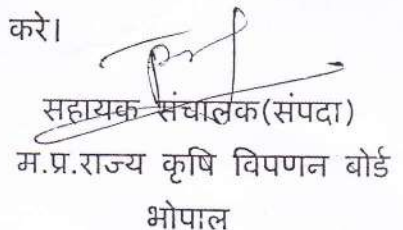 करे।
सहायक संचालक(संपदा)
म.प्र.राज्य कृषि विपणन बोर्ड
भोपाल